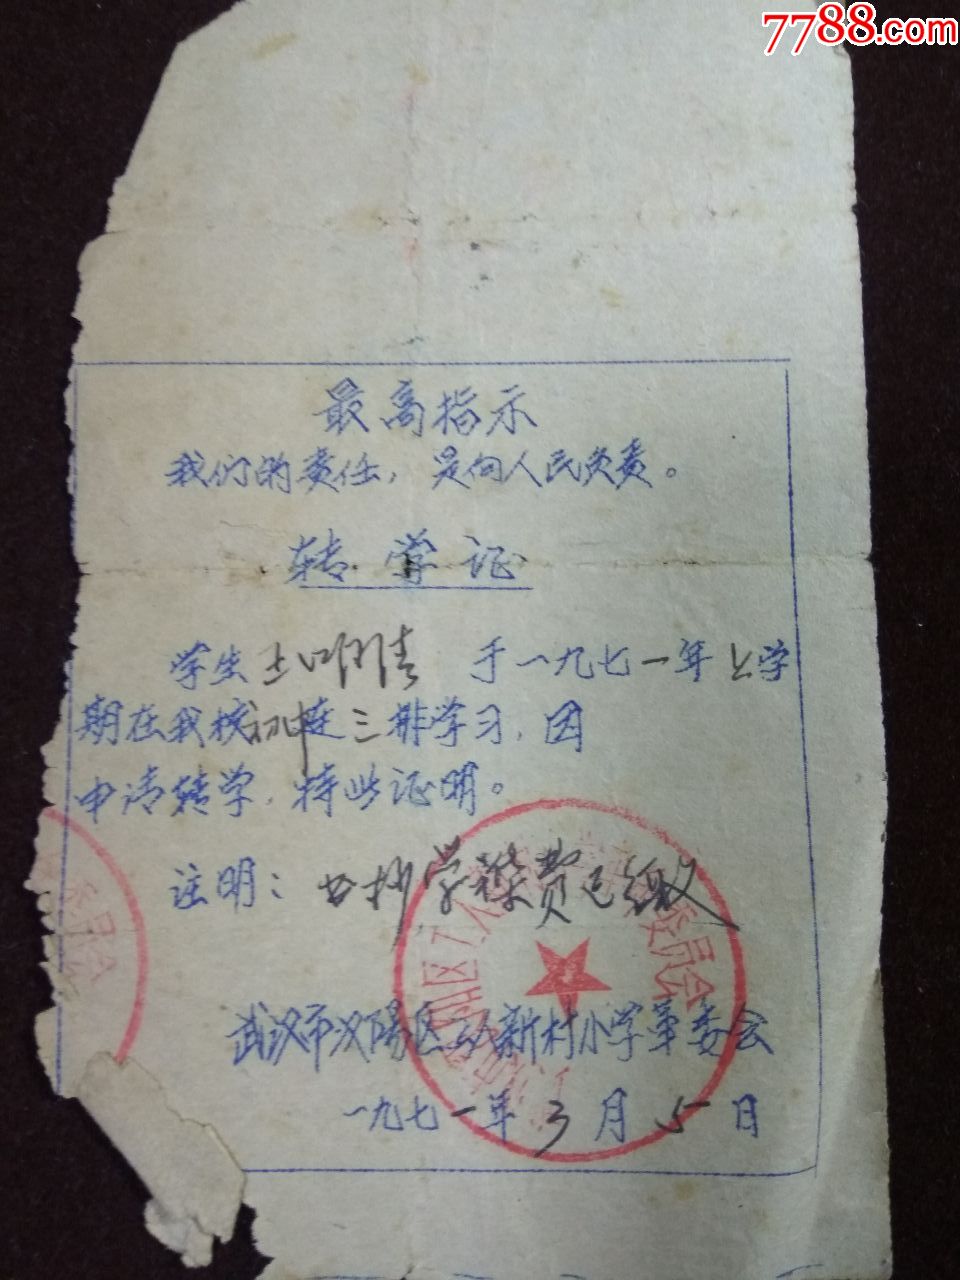 7788.com
最高指示
我们的责任，是向人民负责。
转学证
学生 于一九七一年上学
期在我校初中连三排学习，因
申请转学，特此证明。
注明：书抄学杂费已缴
武汉市汉阳区工人新村小学革委会
一九七一年3月5日
委员会